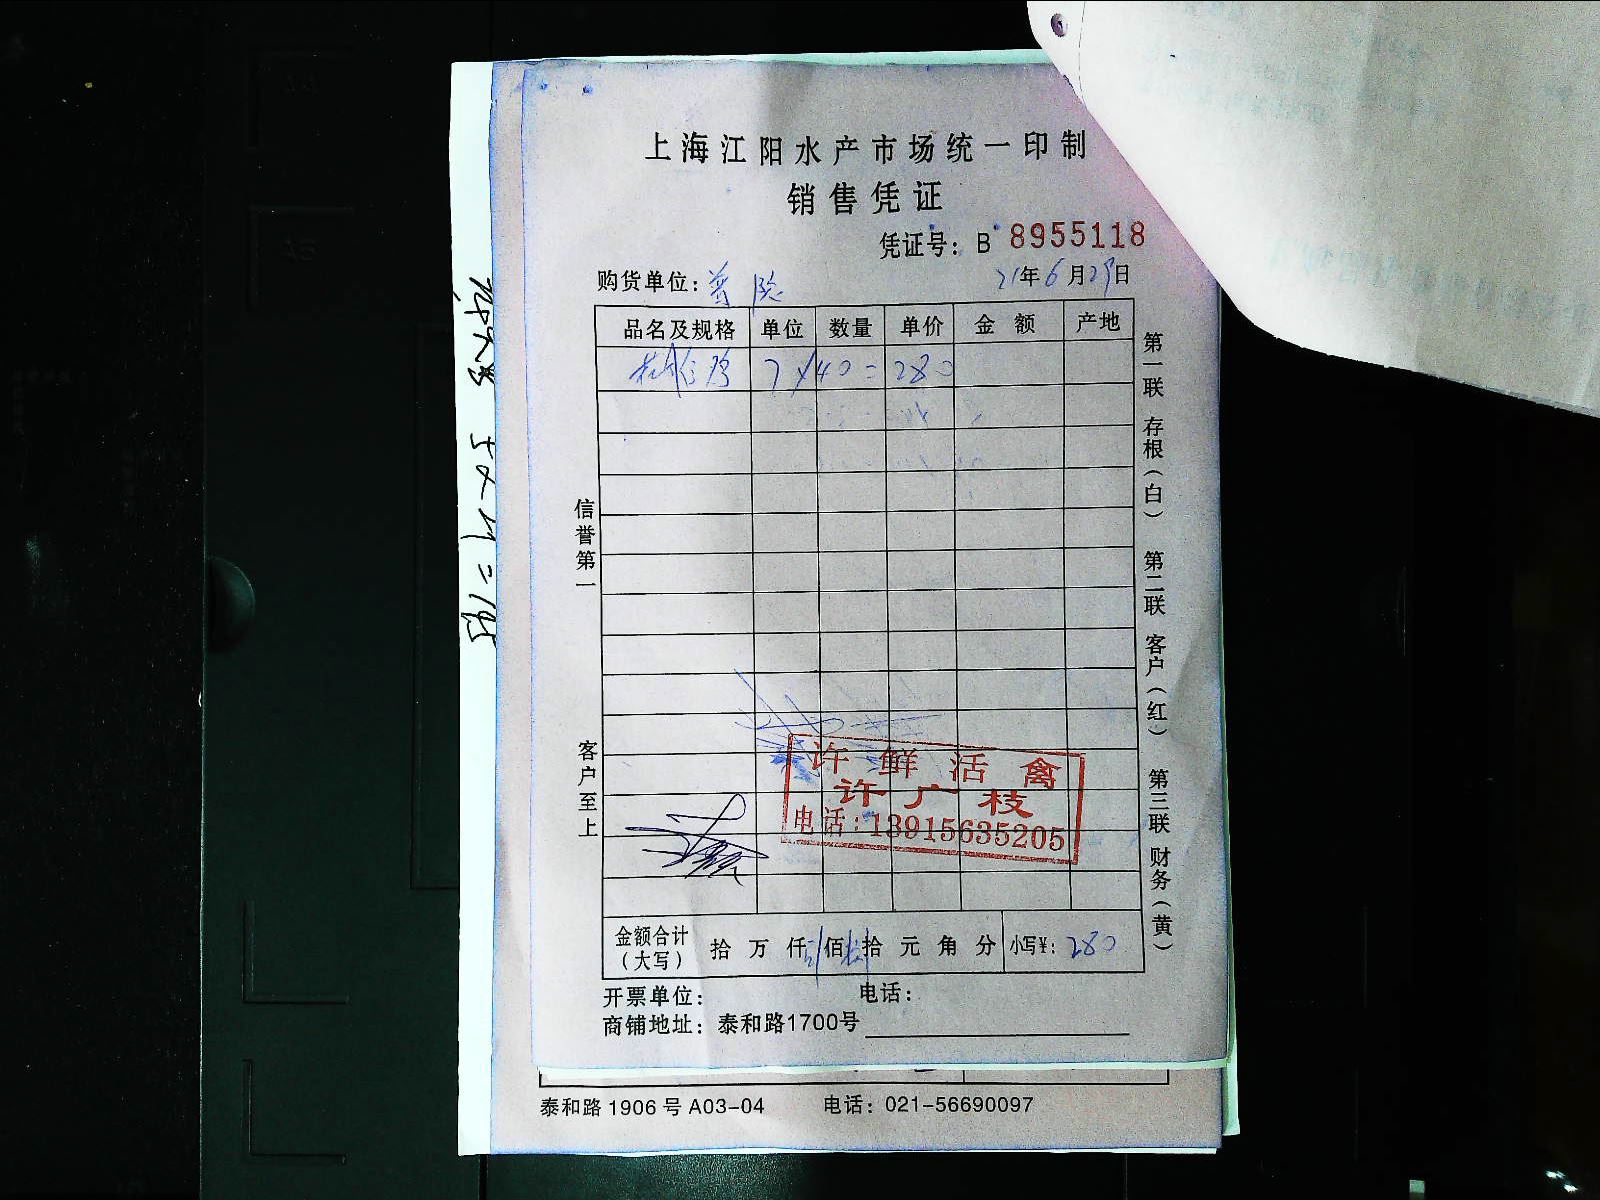 上海江阳水产市场统一印制
销售凭证
凭证号：B 8955118
购货单位：
21年6月29日
品名及规格 单位 数量 单价 金额 产地
7×40=280
信誉第一
客户至上
第一联 存根（白） 第二联 客户（红） 第三联 财务（黄）
许鲜活禽
许广枝
电话：13915635205
金额合计（大写） 拾 万 仟 佰 拾 元 角 分 小写¥：280
开票单位： 电话：
商铺地址：泰和路1700号
泰和路1906号A03-04 电话：021-56690097